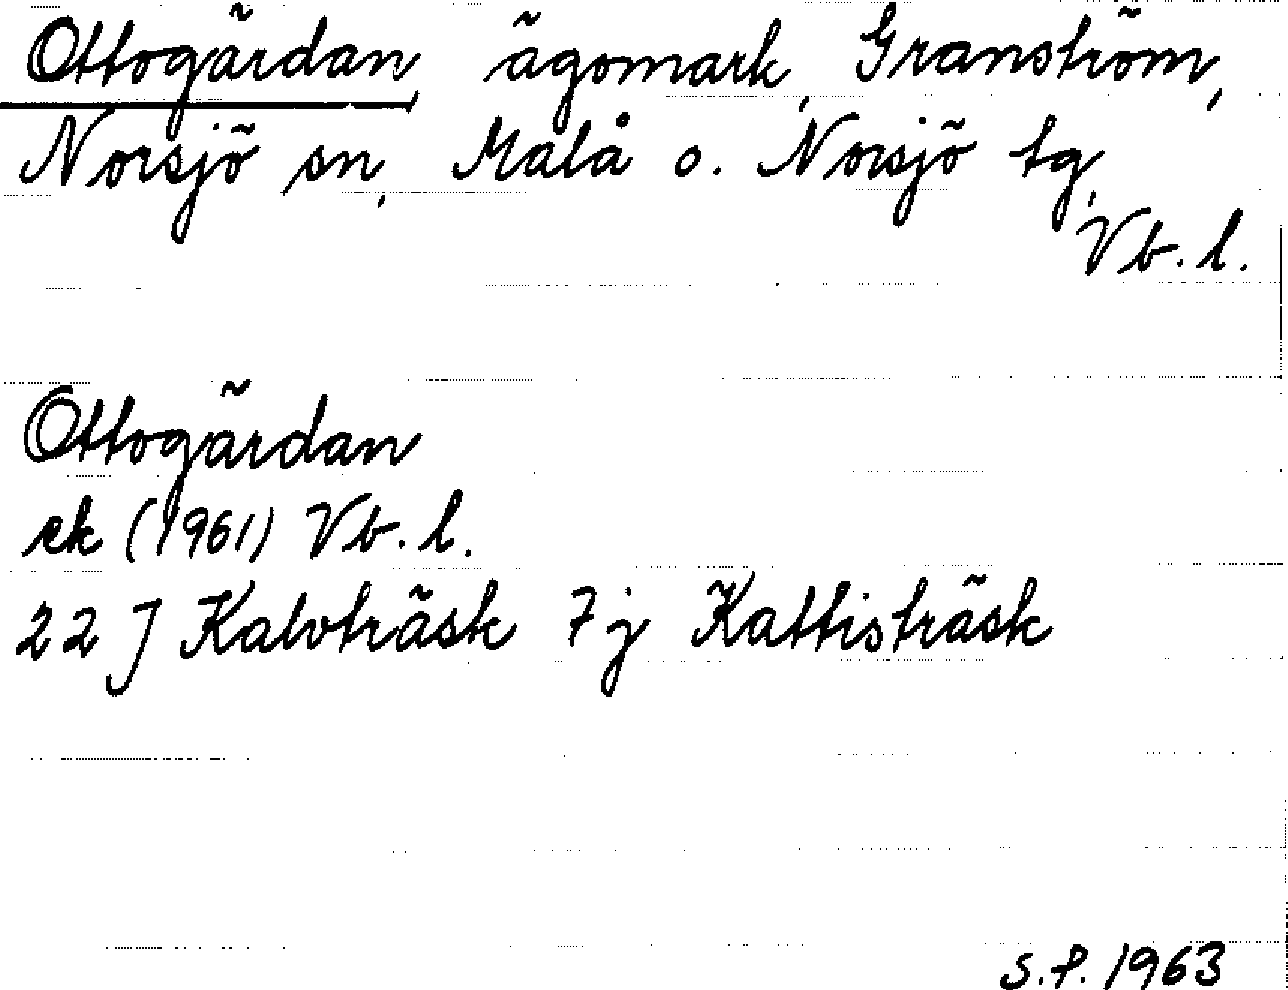 Ottogärdan, ägomark, Granström,
Norsjö sn, Malå o. Norsjö tg,
Vb. l.
Ottogärdan
ek (1961) Vb. l.
22 J Kalvträsk 7j Kattisträsk
S.P. 1963